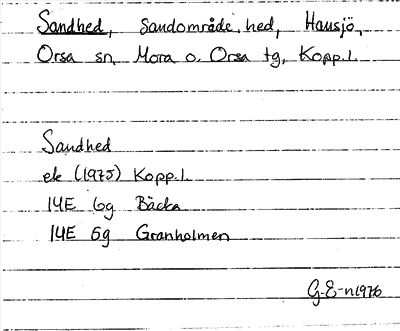 Sandhed, Sandområde, hed, Hansjö,
Orsa sn, Mora o. Orsa tg, Kopp.l.
Sandhed
ek (1975) Kopp.l.
14E 6g Bäcka
14E 5g Granholmen
G-E-n 1976